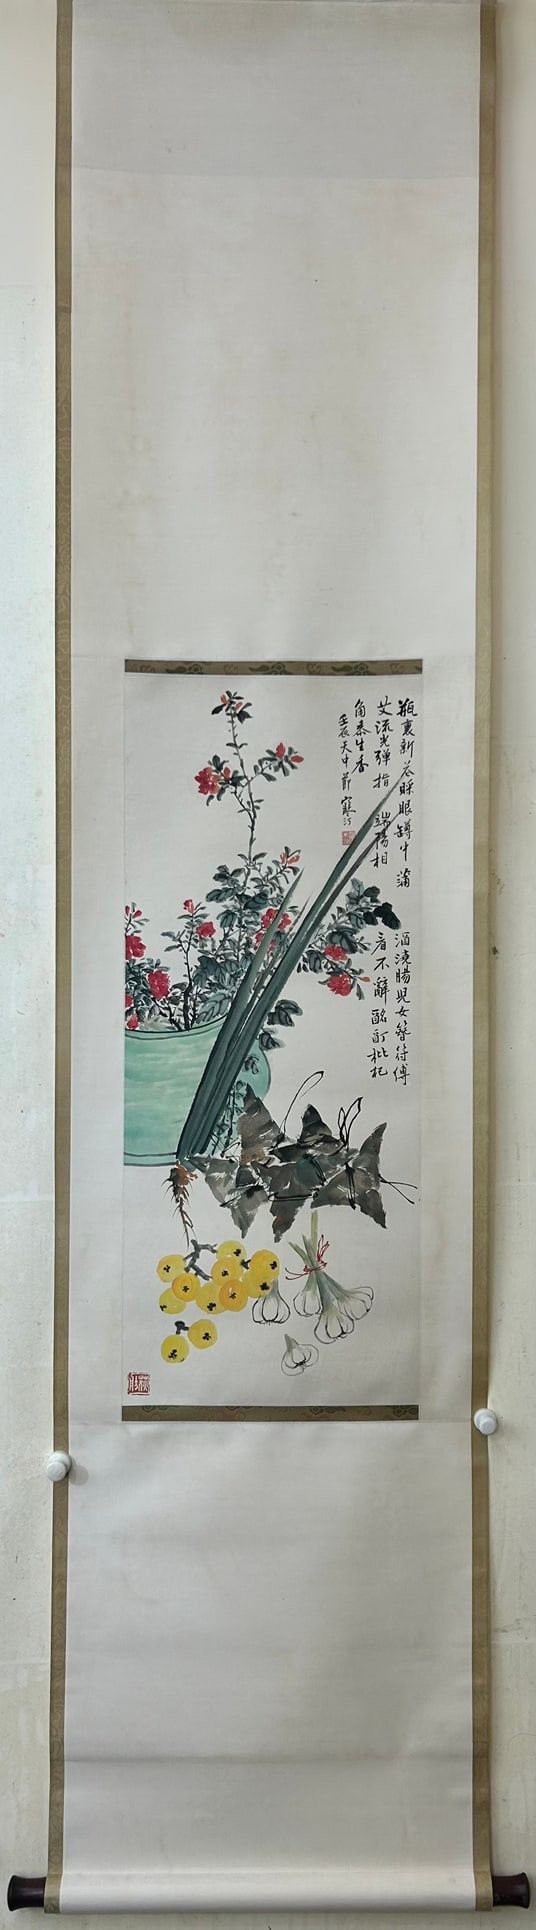 瓶裏新花眯眼罇中蒲酒澆腸兒女簪符傅
艾流光彈指端陽相看不辭酩酊枇杷
角黍生香
壬辰天中節 寒汀